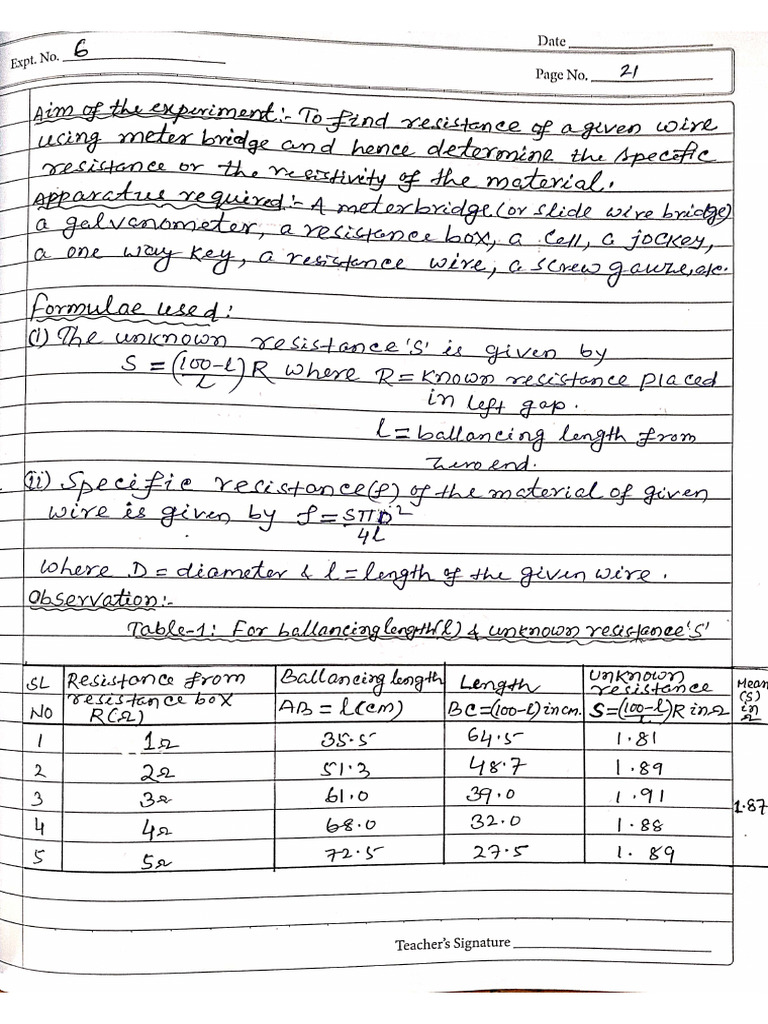 Expt. No. 6
Date
Page No. 21
Aim of the experiment:- To find resistance of a given wire
using meter bridge and hence determine the specific
resistance or the resistivity of the material.
Apparatus required:- A meterbridge (or slide wire bridge)
a galvanometer, a resistance box, a cell, a jockey,
a one way key, a resistance wire, a screw gauze, etc.
Formulae used:
(i) The unknown resistance 'S' is given by
S = (100-l)/l R where R = known resistance placed
in left gap.
l = ballancing length from
zero end.
(ii) Specific resistance (ρ) of the material of given
wire is given by ρ = SπD²/4l
where D = diameter & l = length of the given wire.
Observation:-
Table-1: For ballancing length(l) & unknown resistance 'S'
SL NO | Resistance from resistance box R(Ω) | Ballancing length AB = l(cm) | Length BC = (100-l) in cm. | Unknown resistance S = (100-l)/l R in Ω | Mean (S) in Ω
1 | 1Ω | 35.5 | 64.5 | 1.81
2 | 2Ω | 51.3 | 48.7 | 1.89
3 | 3Ω | 61.0 | 39.0 | 1.91 | 1.87
4 | 4Ω | 68.0 | 32.0 | 1.88
5 | 5Ω | 72.5 | 27.5 | 1.89
Teacher's Signature